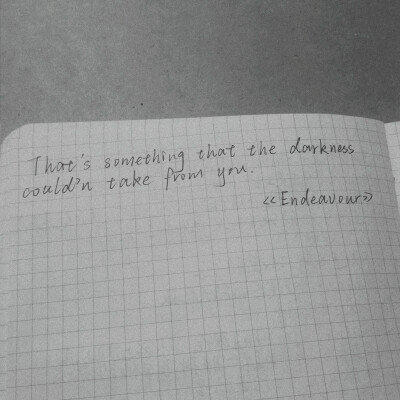 That's something that the darkness
could'n take from you.
<<Endeavour>>